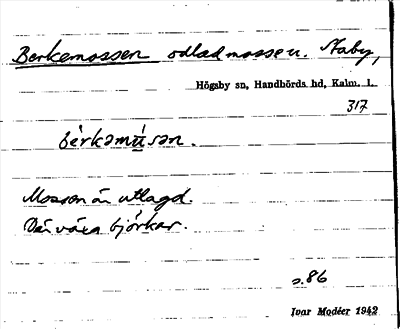 Berkemossen odlad mosse u. Staby,
Högsby sn, Handbörds hd, Kalm. l.
317
bèrkamúsən.
Mossen är utlagd.
Där växa björkar.
s. 86
Ivar Modéer 1942